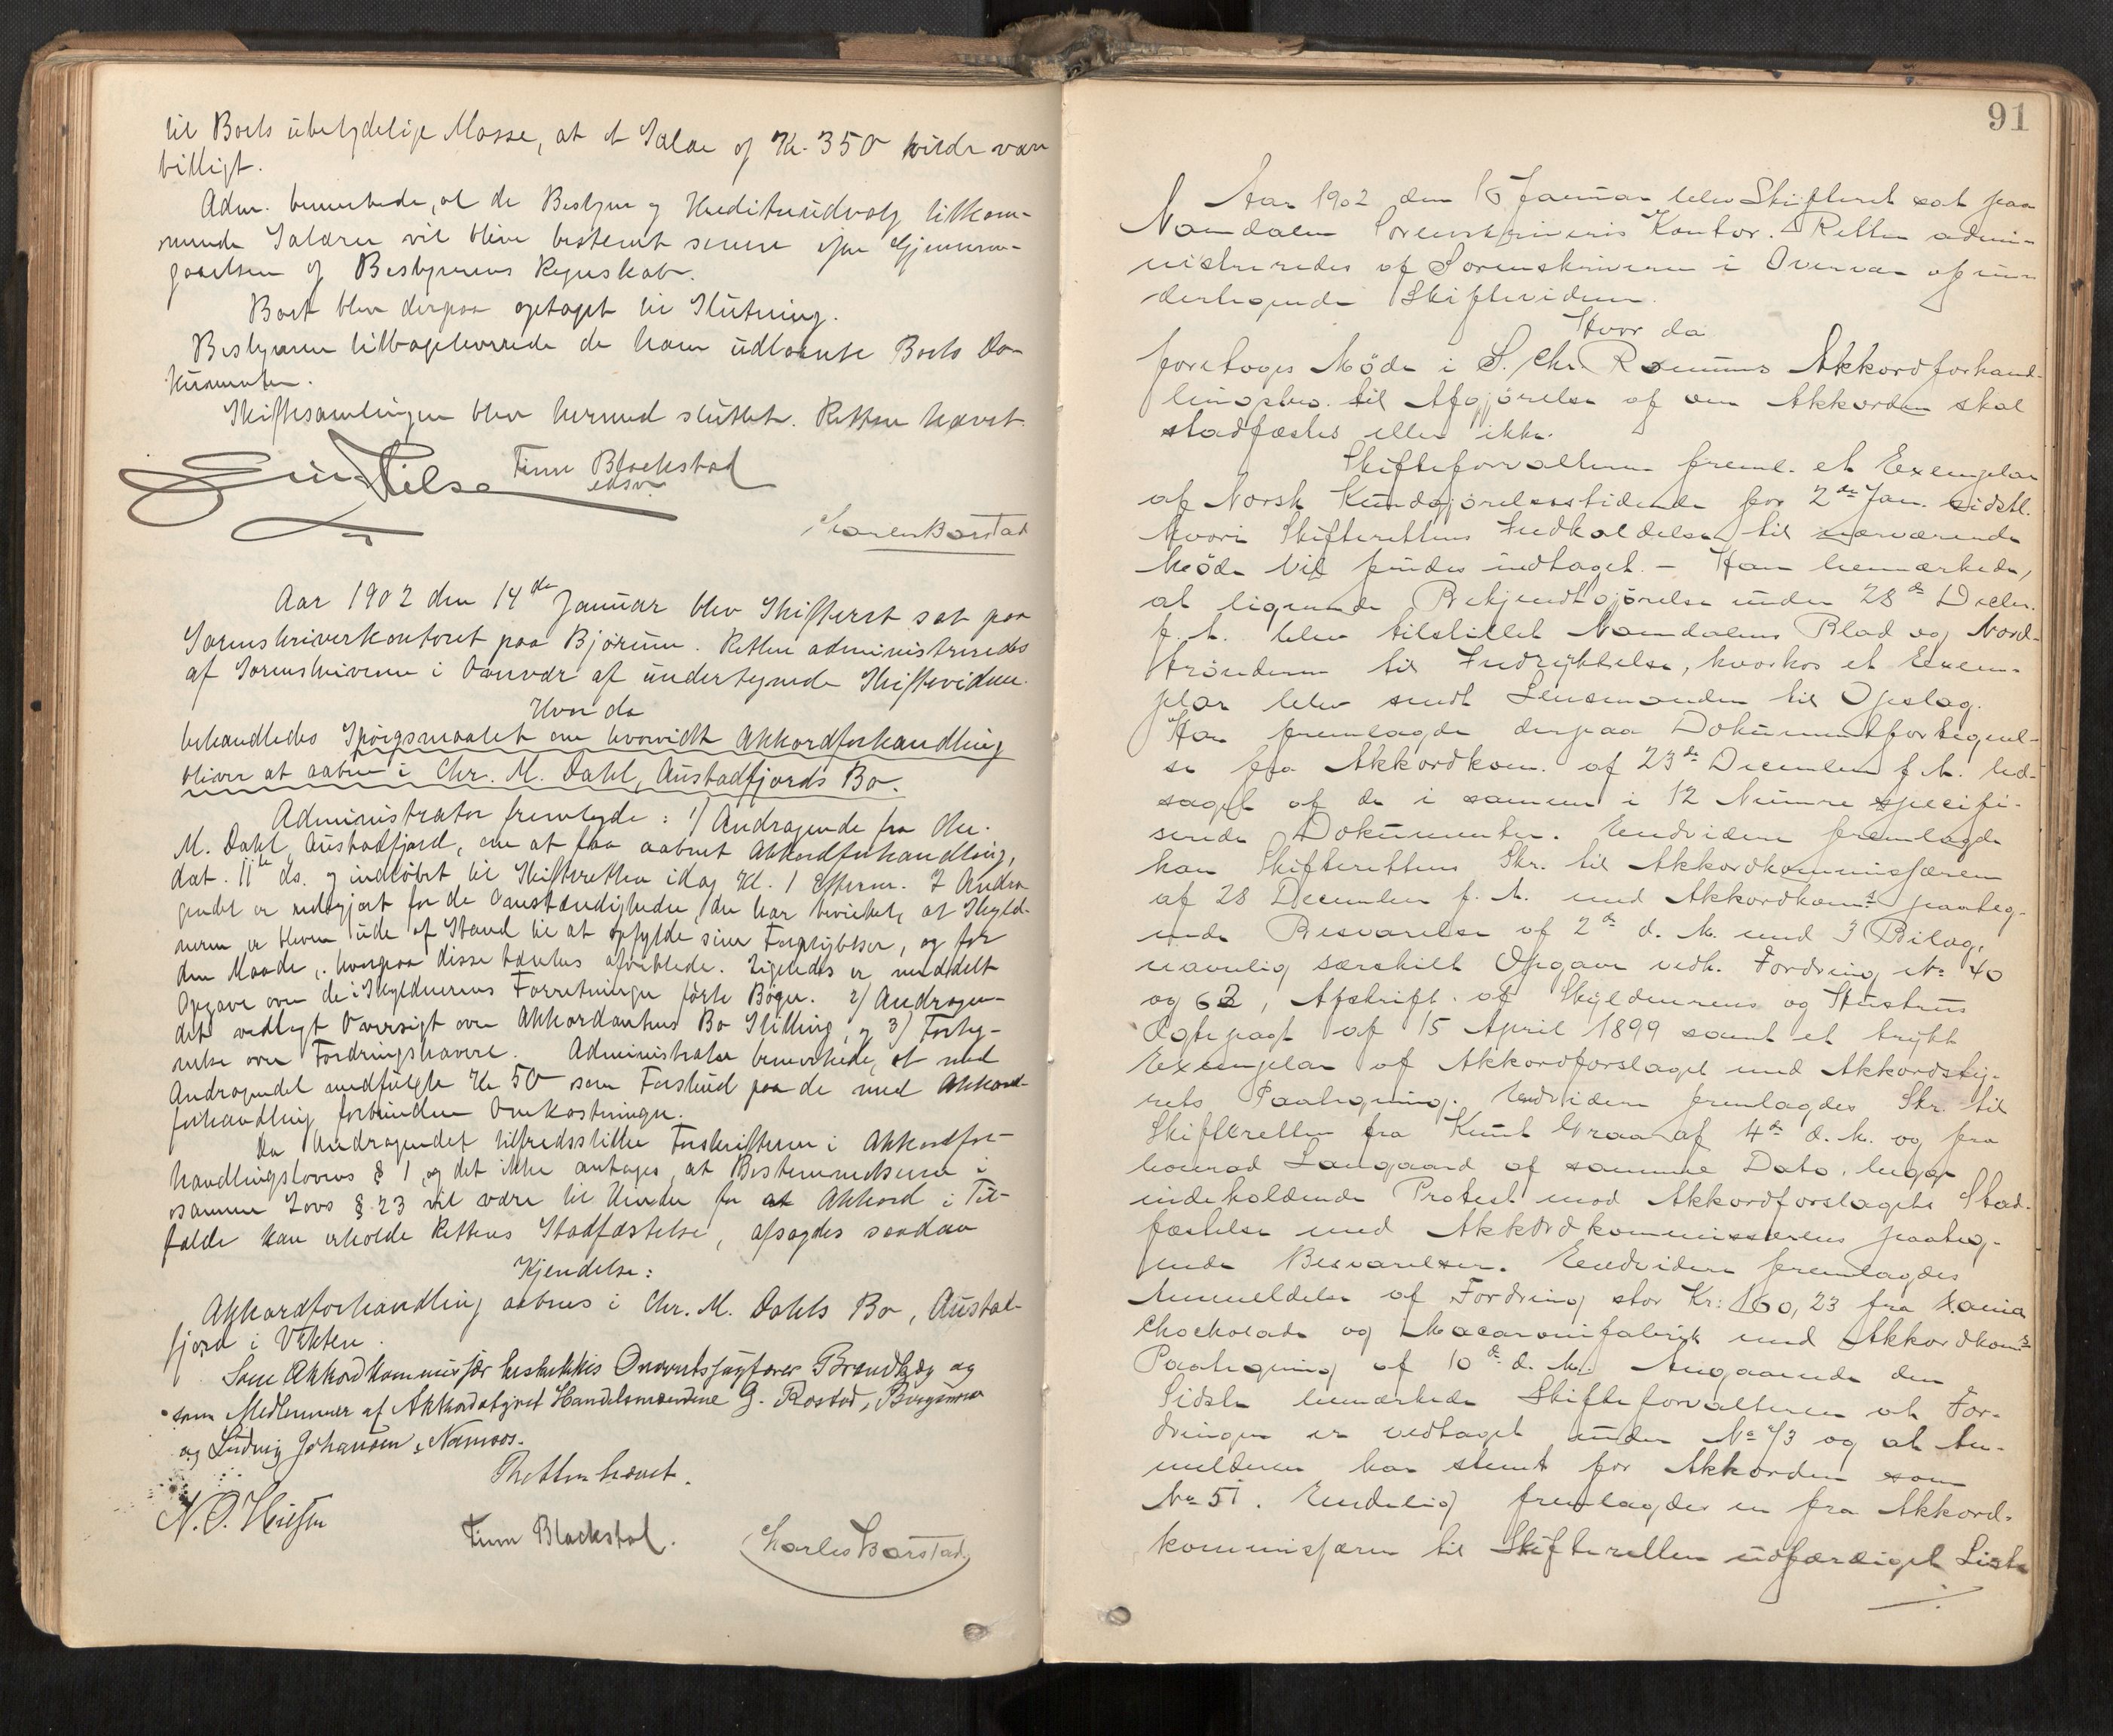 til Boets ubetydelige Masse, at et Salær af Kr. 350 vilde være
billigt.
Adm. bemerkede, at de Bestyrer og Kreditorudvalg tilkom-
mende Salærer vil blive bestemt senere efter Gjennem-
gaaelsen af Bestyrerens Regnskab.
Boet blev derpaa optaget til Slutning.
Bestyreren tilbageleverede de ham udlaante Boets Do-
kumenter.
Skiftesamlingen blev hermed sluttet. Retten hævet.
Finn Blackstad
edsv.
Charles Borstad
Aar 1902 den 14de Januar blev Skifteret sat paa
Sorenskriverkontoret paa Bjørum. Retten administreredes
af Sorenskriveren i Overvær af undertegnede Skiftevidner.
Hvor da
behandledes Spørgsmaalet om hvorvidt Akkordforhandling
bliver at aabne i Chr. M. Dahl, Austadfjords Bo.
Administrator fremlagde: 1) Andragende fra Chr.
M. Dahl, Austadfjord, om at faa aabnet Akkordforhandling,
dat. 11te ds. og indløbet til Skifteretten idag Kl. 1 Efterm. I Andra
gendet er redegjort for de Omstændigheder, der har bevirket, at Skyld-
neren er bleven ude af Stand til at opfylde sine Forpligtelser, og for
den Maade, hvorpaa disse tænkes afviklede. Ligeledes er meddelt
Opgave over de i Skyldnerens Forretninger førte Bøger. 2) Andragen-
det vedlagt Oversigt over Akkordantens Bo Stilling, og 3) Forteg-
nelse over Fordringshavere. Administrator bemerkede, at med
Andragendet medfulgte Kr 50 som Forskud paa de med Akkord-
forhandling forbundne Omkostninger.
Da Andragendet tilfredsstiller Forskrifterne i Akkordfor-
handlingslovens § 1, og det ikke antages, at Bestemmelserne i
samme Lovs § 23 vil være til Hinder for at Akkord i Til-
fælde kan erholde Rettens Stadfæstelse, afsagdes saadan
Kjendelse:
Akkordforhandling aabnes i Chr. M. Dahls Bo, Austad-
fjord i Vikten.
Som Akkordkommissær beskikkes Overretssagfører Brandtzæg og
som Medlemmer af Akkordstyret Handelsmændene G. Rostad,
og Ludvig Johansen, Namsos.
Retten hævet.
Finn Blackstad.
Charles Borstad
91
Aar 1902 den 16 Januar blev Skifteret sat paa
Namdalen Sorenskriveris Kontor. Retten admi-
nistreredes af Sorenskriveren i Overvær af un-
dertegnede Skiftevidner.
Hvor da
foretoges Møde i S. Chr. Rømuus Akkordforhand-
lingsbo. til Afgjørelse af om Akkorden skal
stadfæstes eller ikke.
Skifteforvalteren freml. et Exemplar
af Norsk Kundgjørelsestidende for 2de Jan. sidstl.
hvori Skifterettens Indkaldelse til nærværende
Møde vil findes indtaget. – Han bemærkede,
at lignende Bekjendtgjørelse under 28de Decbr.
f. A. blev tilstillet Namdalens Blad og Nord-
trønderen til Indrykkelse, hvorhos et Exem-
plar blev sendt Lensmanden til Opslag.
Han fremlagde derpaa Dokumentfortegnel-
se fra Akkordkom. af 23de December f. A. led-
saget af de i samme i 12 Numre specifi-
serede Dokumenter. Endvidere fremlagde
han Skifterettens Skr. til Akkordkommissæren
af 28 December f. A. med Akkordkoms paateg-
nede Besvarelse af 2de d. M. med 3 Bilag,
navnlig særskilt Opgave vedk. Fordring No 40
og 62, Afskrift af Skyldnerens og Hustrus
Ægtepagt af 15 April 1899 samt et trykt
Exemplar af Akkordforslaget med Akkordsty-
rets Paategning. Endvidere fremlagdes Skr. til
Skifteretten fra Knut Graa af 4de d. M. og fra
Konrad Langaard af samme Dato, begge
indeholdende Protest mod Akkordforslagets Stad-
fæstelse med Akkordkommissærens paateg-
nede Besvarelser. Endvidere fremlagdes
Anmeldelse af Fordring stor Kr: 160,23 fra Xania
Chokolade og Macaronifabrik med Akkordkoms
Paategning af 10de d. M. Angaaende den
Sidste bemærkede Skifteforvalteren at For-
dringen er vedtaget under No 43 og at An-
melderen har stemt for Akkorden som
No 51. Endelig fremlagdes en fra Akkord-
kommissæren til Skifteretten udfærdiget Liste